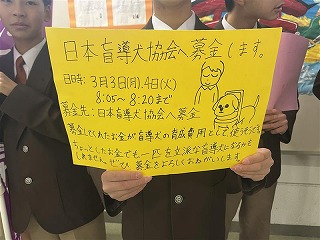 日本盲導犬協会へ募金します。
日時:3月3日(月).4日(火)
8:05〜8:20まで
募金先:日本盲導犬協会へ募金
募金してくれたお金が盲導犬の育成費用として使うそうです。
ちょっとしたお金でも一匹を立派な盲導犬になるかも
しれません。ぜひ募金をよろしくおねがいします